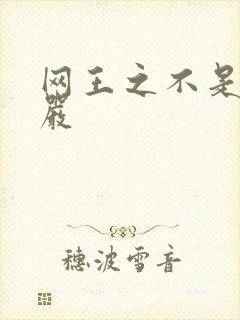 网王之不是
严
穗波雪音